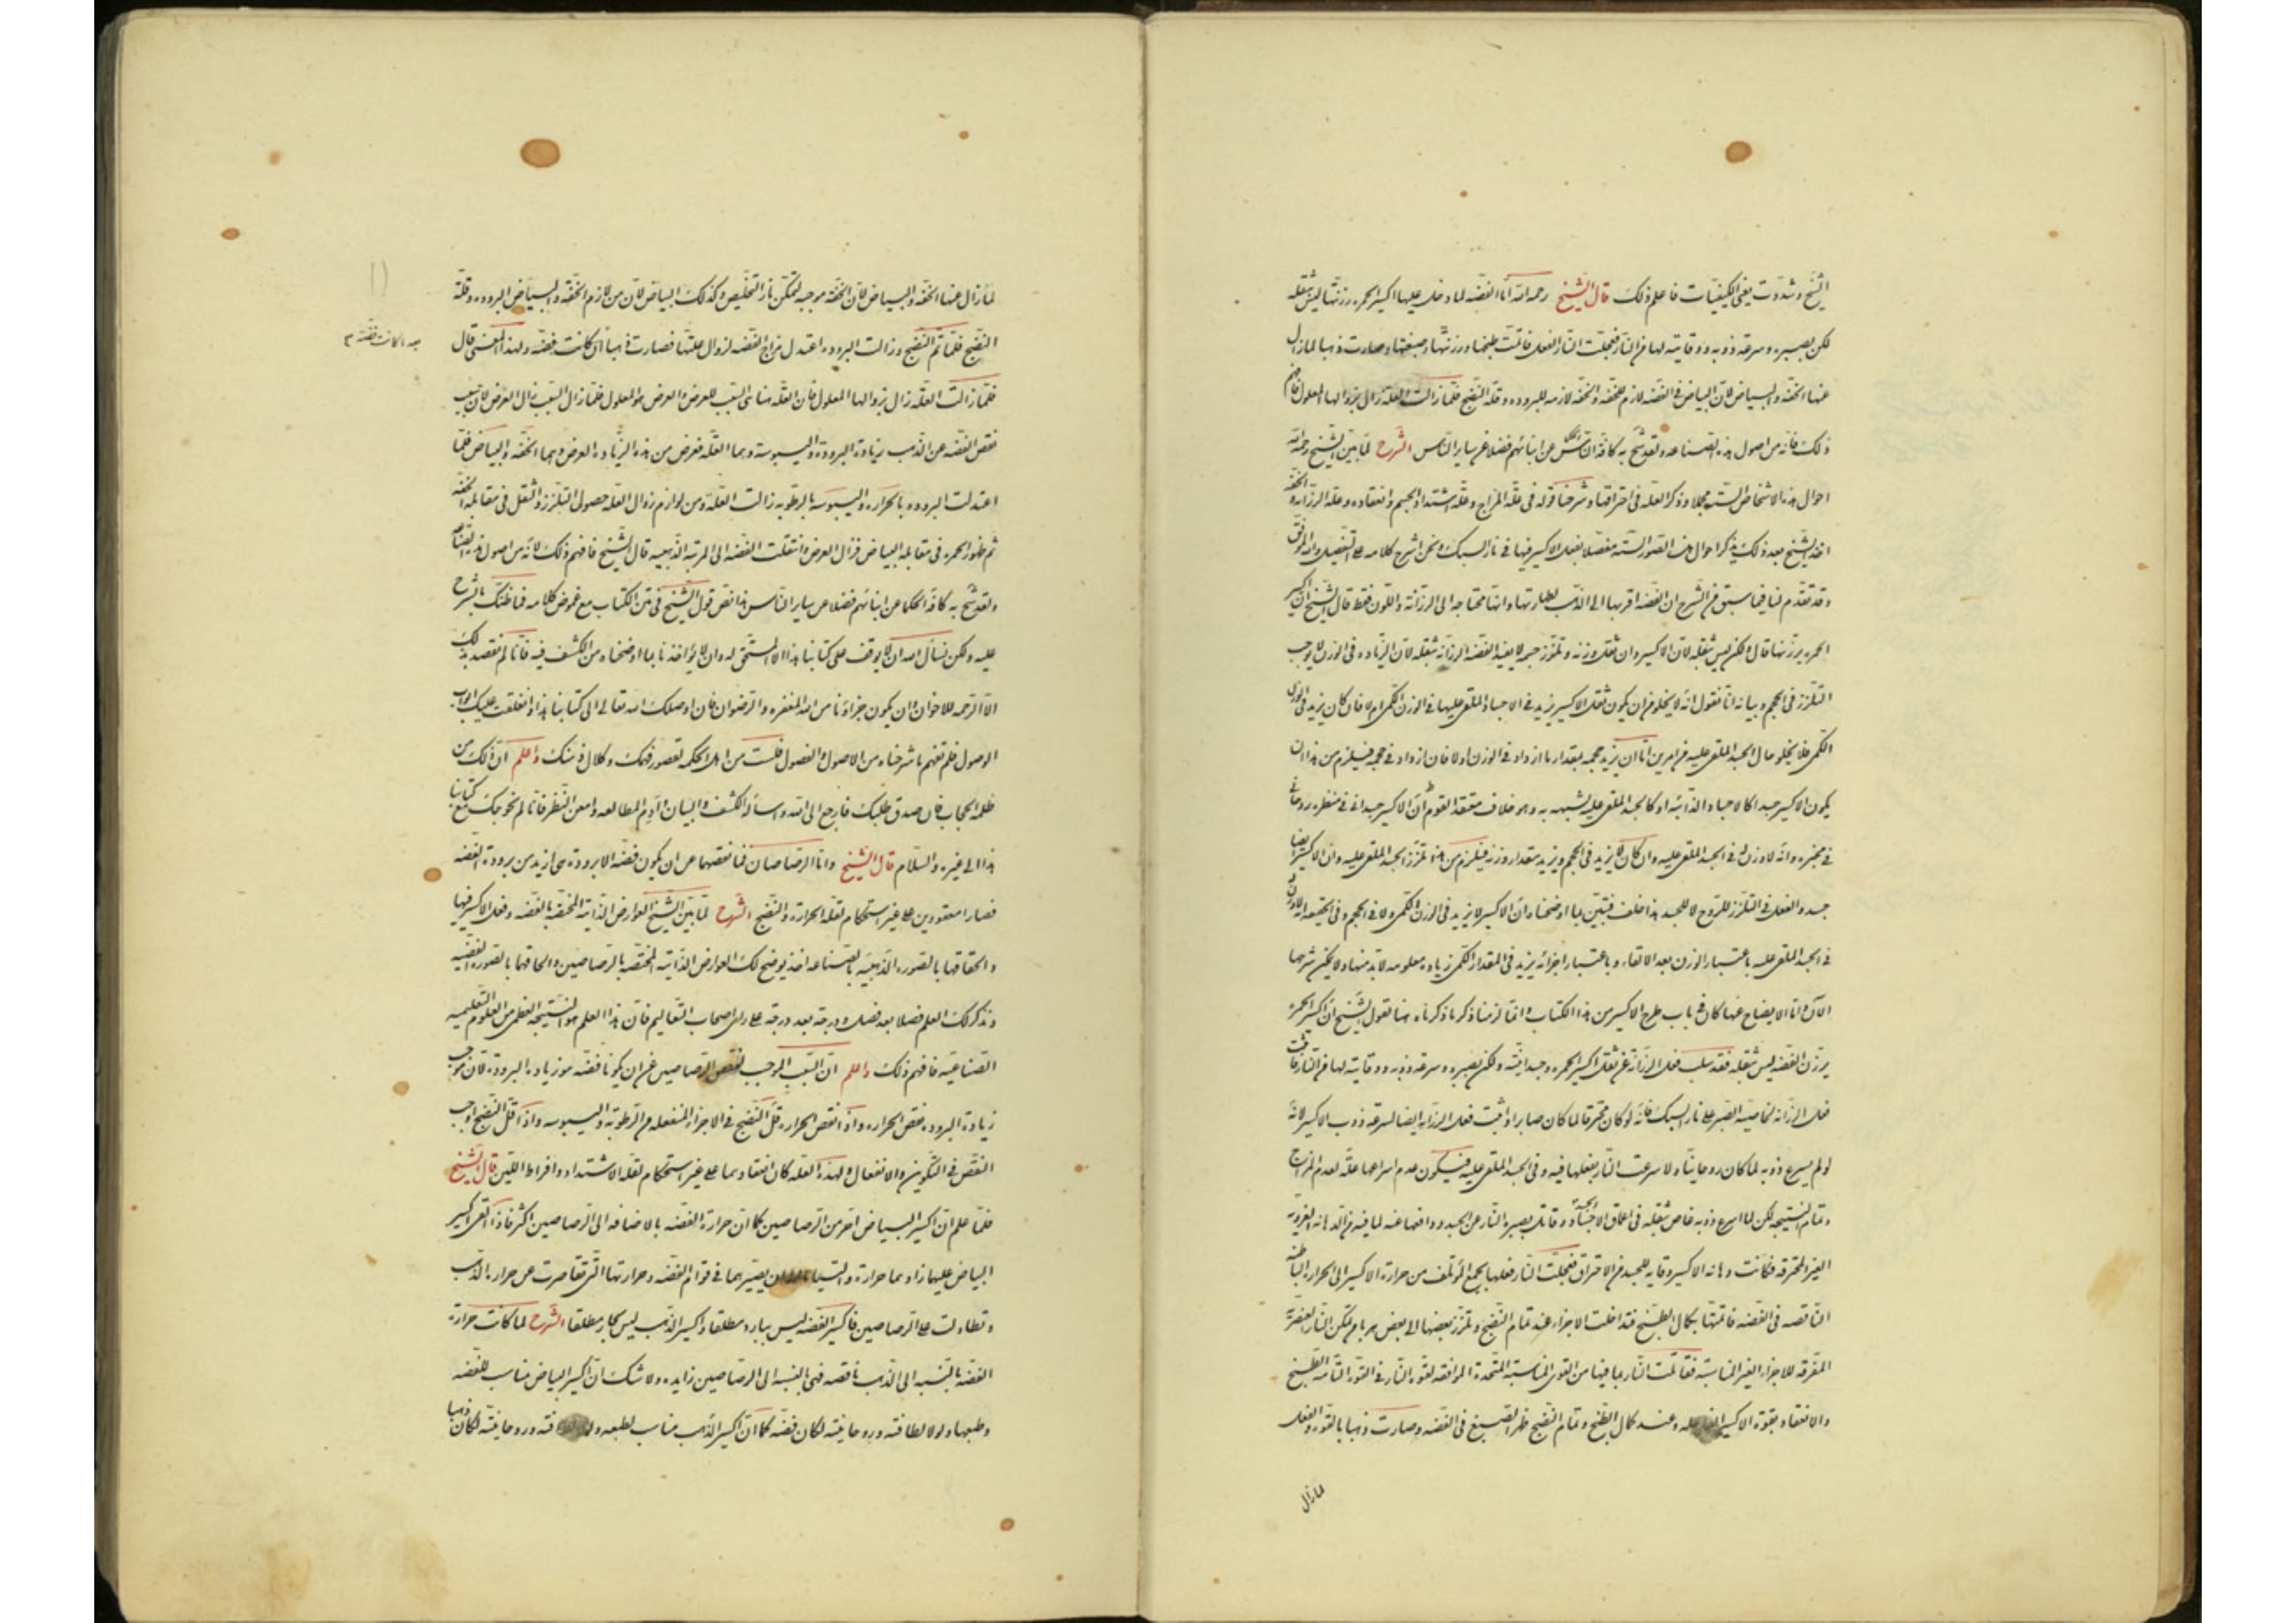 الشيخ وشدوت يعنى الكيفيات فاعلم ذلك قال الشيخ رحمه الله اما الفضه لما دخل عليها اكسير الحمره رزنها ليس بثقله
لكن بصبره وسرعة ذوبه ووقايته لها من النار فعجلت النار الفعل فاتمت طبخها ورزنتها وصبغتها وصارت ذهبا لما زال
عنها الخفه والبياض لان البياض فى الفضه لازم للخفه والخفه لازمه للبروده وقلة النضج فلما زالت العلة زال بزوالها المعلول فافهم
ذلك فانه من اصول هذه الصناعه ولقد شح به كافة الناس عن ابنائهم فضلا عن ساير الناس الشرح لما بين الشيخ رحمه الله
احوال هذه الاشخاص الستة مجملا وذكر العلة فى احتراقها وشرحنا قوله فى علة المزاج وعلة اشتداد الجسم وانعقاده وعلة الرزانه والخفه
اخذ الشيخ بعد ذلك يذكر احوال هذه الصور الستة مفصلا بفعل الاكسير فيها فى نار السبك ونحن نشرح كلامه على التفصيل والله الموفق
وقد تقدم لنا فيما سبق من الشرح ان الفضه اقربها الى الذهب لطهارتها وانها محتاجه الى الرزانة واللون فقط قال الشيخ ان اكسير
الحمره يرزنها قال ولكن ليس بثقله لان الاكسير وان ثقل وزنه وتلزز جسمه لا يفيد الفضه الرزانة بثقله لان الزياده فى الوزن لا يوجب
التلزز فى الحجم وبيانه انا نقول انه لا يخلو من ان يكون ثقل الاكسير يزيد فى الاجساد الملقى عليها فى الوزن الكمى ام لا فان كان يزيد فى الوزن
الكمى فلا يخلو حال الجسد الملقى عليه من امرين اما ان يزيد حجمه بمقدار ما ازداد فى الوزن اولا فان ازداد فى حجمه فيلزم من هذا ان
يكون الاكسير جسدا كالاجساد الذائبه او كالجسد الملقى عليه يشبهه به وهو خلاف معتقد القوم ان الاكسير جسدانى فى منظره روحانى
فى مخبره وانه لا وزن له فى الجسد الملقى عليه وان كان لا يزيد فى الحجم ويزيد بمقدار وزنه فيلزم من هذه تلزز الجسد الملقى عليه وان الاكسير ايضا
جسد والفعل فى التلزز للروح لا للجسد هذا خلف فتبين لما اوضحناه ان الاكسير لا يزيد فى الوزن الكمى ولا فى الحجم وفى الحقيقه انه لا وزن له
فى الجسد الملقى عليه باعتبار الوزن بعد الالقاء وباعتبار اجزائه يزيد فى المقدار الكمى زياده معلومه لا بد منها ولا يمكن شرحها
الآن واما الايضاح عنها كان فى باب طرح الاكسير من هذا الكتاب وانما لزمنا ذكر ما ذكرناه هنا لقول الشيخ ان اكسير الحمره
يرزن الفضه ليس بثقله فقد سلب فعل الرزانة عن ثقل اكسير الحمره وجسدانيته ولكن بصبره وسرعة ذوبه ووقايته لها من النار فاثبت
فعل الرزانه لخاصية الصبر على نار السبك فانه لو كان محترقا لما كان صابرا واثبت فعل الرزانه ايضا لسرعة ذوب الاكسير لانه
لو لم يسرع ذوبه لما كان روحانيا ولا سرعت النار بفعلها فيه وفى الجسد الملقى عليه فيكون عدم اسراعها علة لعدم المزاج
وتمام النتيجه لكن لما اسرع ذوبه غاص بثقله فى اعماق الاجساد الجسديه وقاتل بصبره النار عن الجسد ودافعها عنه لما فيه من الدهانه الغرويه
الغير المحترقه فكانت دهانه الاكسير وقايه للجسد من الاحتراق فعجلت النار فعلها بجمع المؤتلف من حرارة الاكسير الى الحراره الباطنه
الناقصه فى الفضه فاتمتها بكمال الطبخ فتداخلت الاجزاء عند تمام النضج وتلزز بعضها الى بعض هربا من تمكن النار العنصريه
المفرقه للاجزاء الغير المناسبة فقاتلت النار بما فيها من القوى المناسبة المتحدة الموافقه لقوة النار فى القوة التامه الطبخ
والانعقاد بقوة الاكسير الفاعله وعند كمال الطبخ وتمام النضج ظهر الصبغ فى الفضه وصارت ذهبا بالقوه والفعل
لما زال
لما زال عنها الخفه والبياض لان الخفة موجبه لتمكن نار التخليص وكذلك البياض لان من لازم الخفة والبياض البروده وقلة
النضج فلما تم النضج وزالت البروده اعتدل مزاج الفضه لزوال علتها فصارت ذهبا ان كانت فضه ولهذا المعنى قال
بعد ان كانت فضة
فلما زالت العلة زال بزوالها المعلول فان العلة هنا هى السبب للعرض والعرض هو المعلول فلما زال السبب زال العرض لان سبب
نقص الفضه عن الذهب زيادة البرودة واليبوسة وهما العلة فعرض من هذه الزيادة العرض وهما الخفة والبياض فلما
اعتدلت البروده بالحراره واليبوسه بالرطوبه زالت العلة ومن لوازم زوال العلة حصول التلزز والثقل فى مقابلة الخفه
ثم ظهور الحمره فى مقابلة البياض فزال العرض وانتقلت الفضه الى المرتبه الذهبيه قال الشيخ فافهم ذلك لانه من اصول هذه الصناعه
ولقد شح به كافة الحكما عن ابنائهم فضلا عن ساير الناس هذا نص قول الشيخ فى متن الكتاب مع غموض كلامه فما ظنك بالشرح
عليه ولكن نسأل الله ان لا يوقف على كتابنا هذا الا المستحق له وان لا يؤاخذنا بما اوضحناه من الكشف فيه فانا لم نقصد بذلك
الا الرحمه للاخوان وان يكون جزاؤنا من الله المغفره والرضوان فان اوصلك الله تعالى الى كتابنا هذا وانغلقت عليك ابواب
الوصول فلم تفهم ما شرحناه من الاصول والفصول فلست من اهل الحكمه لقصور فهمك وكلال ذهنك واعلم ان ذلك من
ظلمة الحجاب فان صدق طلبك فارجع الى الله واسأله الكشف والبيان وادم المطالعه وامعن النظر فانا لم نحوجك مع كتابنا
هذا الى غيره والسلام قال الشيخ واما الرصاصان فما نقصهما عن ان يكون فضه الا برودة هى ازيد من برودة الفضه
فصارا معقودين على غير استحكام لقلة الحرارة والنضج الشرح لما بين الشيخ العوارض الذاتية المختصه بالفضه وفعل الاكسير فيها
والحاقها بالصوره الذهبيه بالصناعه اخذ يوضح لك العوارض الذاتيه المختصه بالرصاصين والحاقهما بالصوره الفضيه
ونذكر لك العلم فصلا بعد فصل ودرجة بعد درجة على راى اصحاب التعاليم فان هذا العلم هو النتيجه العظمى من العلوم التعليميه
الصناعيه فافهم ذلك واعلم ان السبب الموجب لنقص الرصاصين عن ان يكونا فضه هو زيادة البرودة لان موجب
زيادة البروده نقص الحراره واذا نقص الحراره قل النضج فى الاجزاء المنفعله من الرطوبة واليبوسه واذا قل النضج اوجب
النقص فى التكوين والانفعال ولهذه العله كان انعقادهما على غير استحكام لقلة الاشتداد وافراط اللين قال الشيخ
فلما علم ان اكسير البياض احر من الرصاصين كما ان حرارة الفضه بالاضافه الى الرصاصين اكثر فاذا القى اكسير
البياض عليها زادهما حرارة والتيا يصيرهما فى قوام الفضه وحرارتها التى تقاصرت عن حرارة الذهب
وتطاولت على الرصاصين فاكسير الفضه ليس ببارد مطلقا واكسير الذهب ليس بحار مطلقا الشرح لما كانت حرارة
الفضه بالنسبه الى الذهب ناقصه فهى بالنسبه الى الرصاصين زايده ولا شك ان اكسير البياض مناسب للفضه
وطبعها ولولا لطافته وروحانيته لكان فضه كما ان اكسير الذهب مناسب لطبعه ولولا لطافته وروحانيته لكان ذهبا